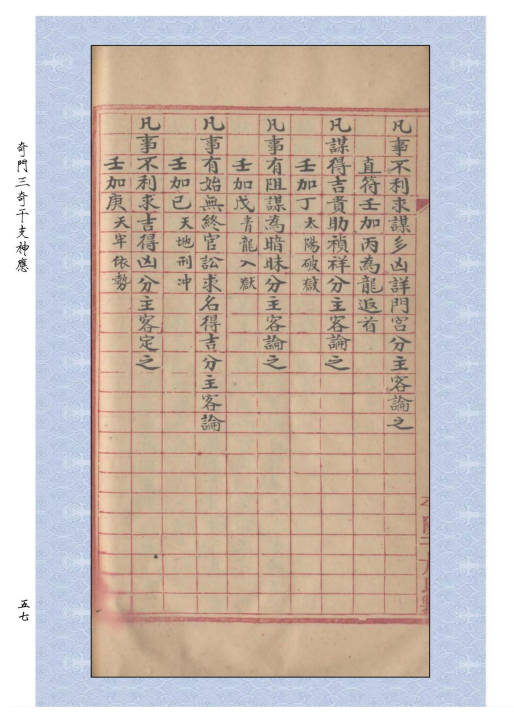 凡事不利求謀多凶詳門宮分主客論之
直符壬加丙為龍返首
凡謀得吉貴助禎祥分主客論之
壬加丁太陽破獄
凡事有阻謀為暗昧分主客論之
壬加戊青龍入獄
凡事有始無終官訟求名得吉分主客論
壬加己天地刑冲
凡事不利求吉得凶分主客定之
壬加庚天牢依勢
奇門三奇干支神應
五七